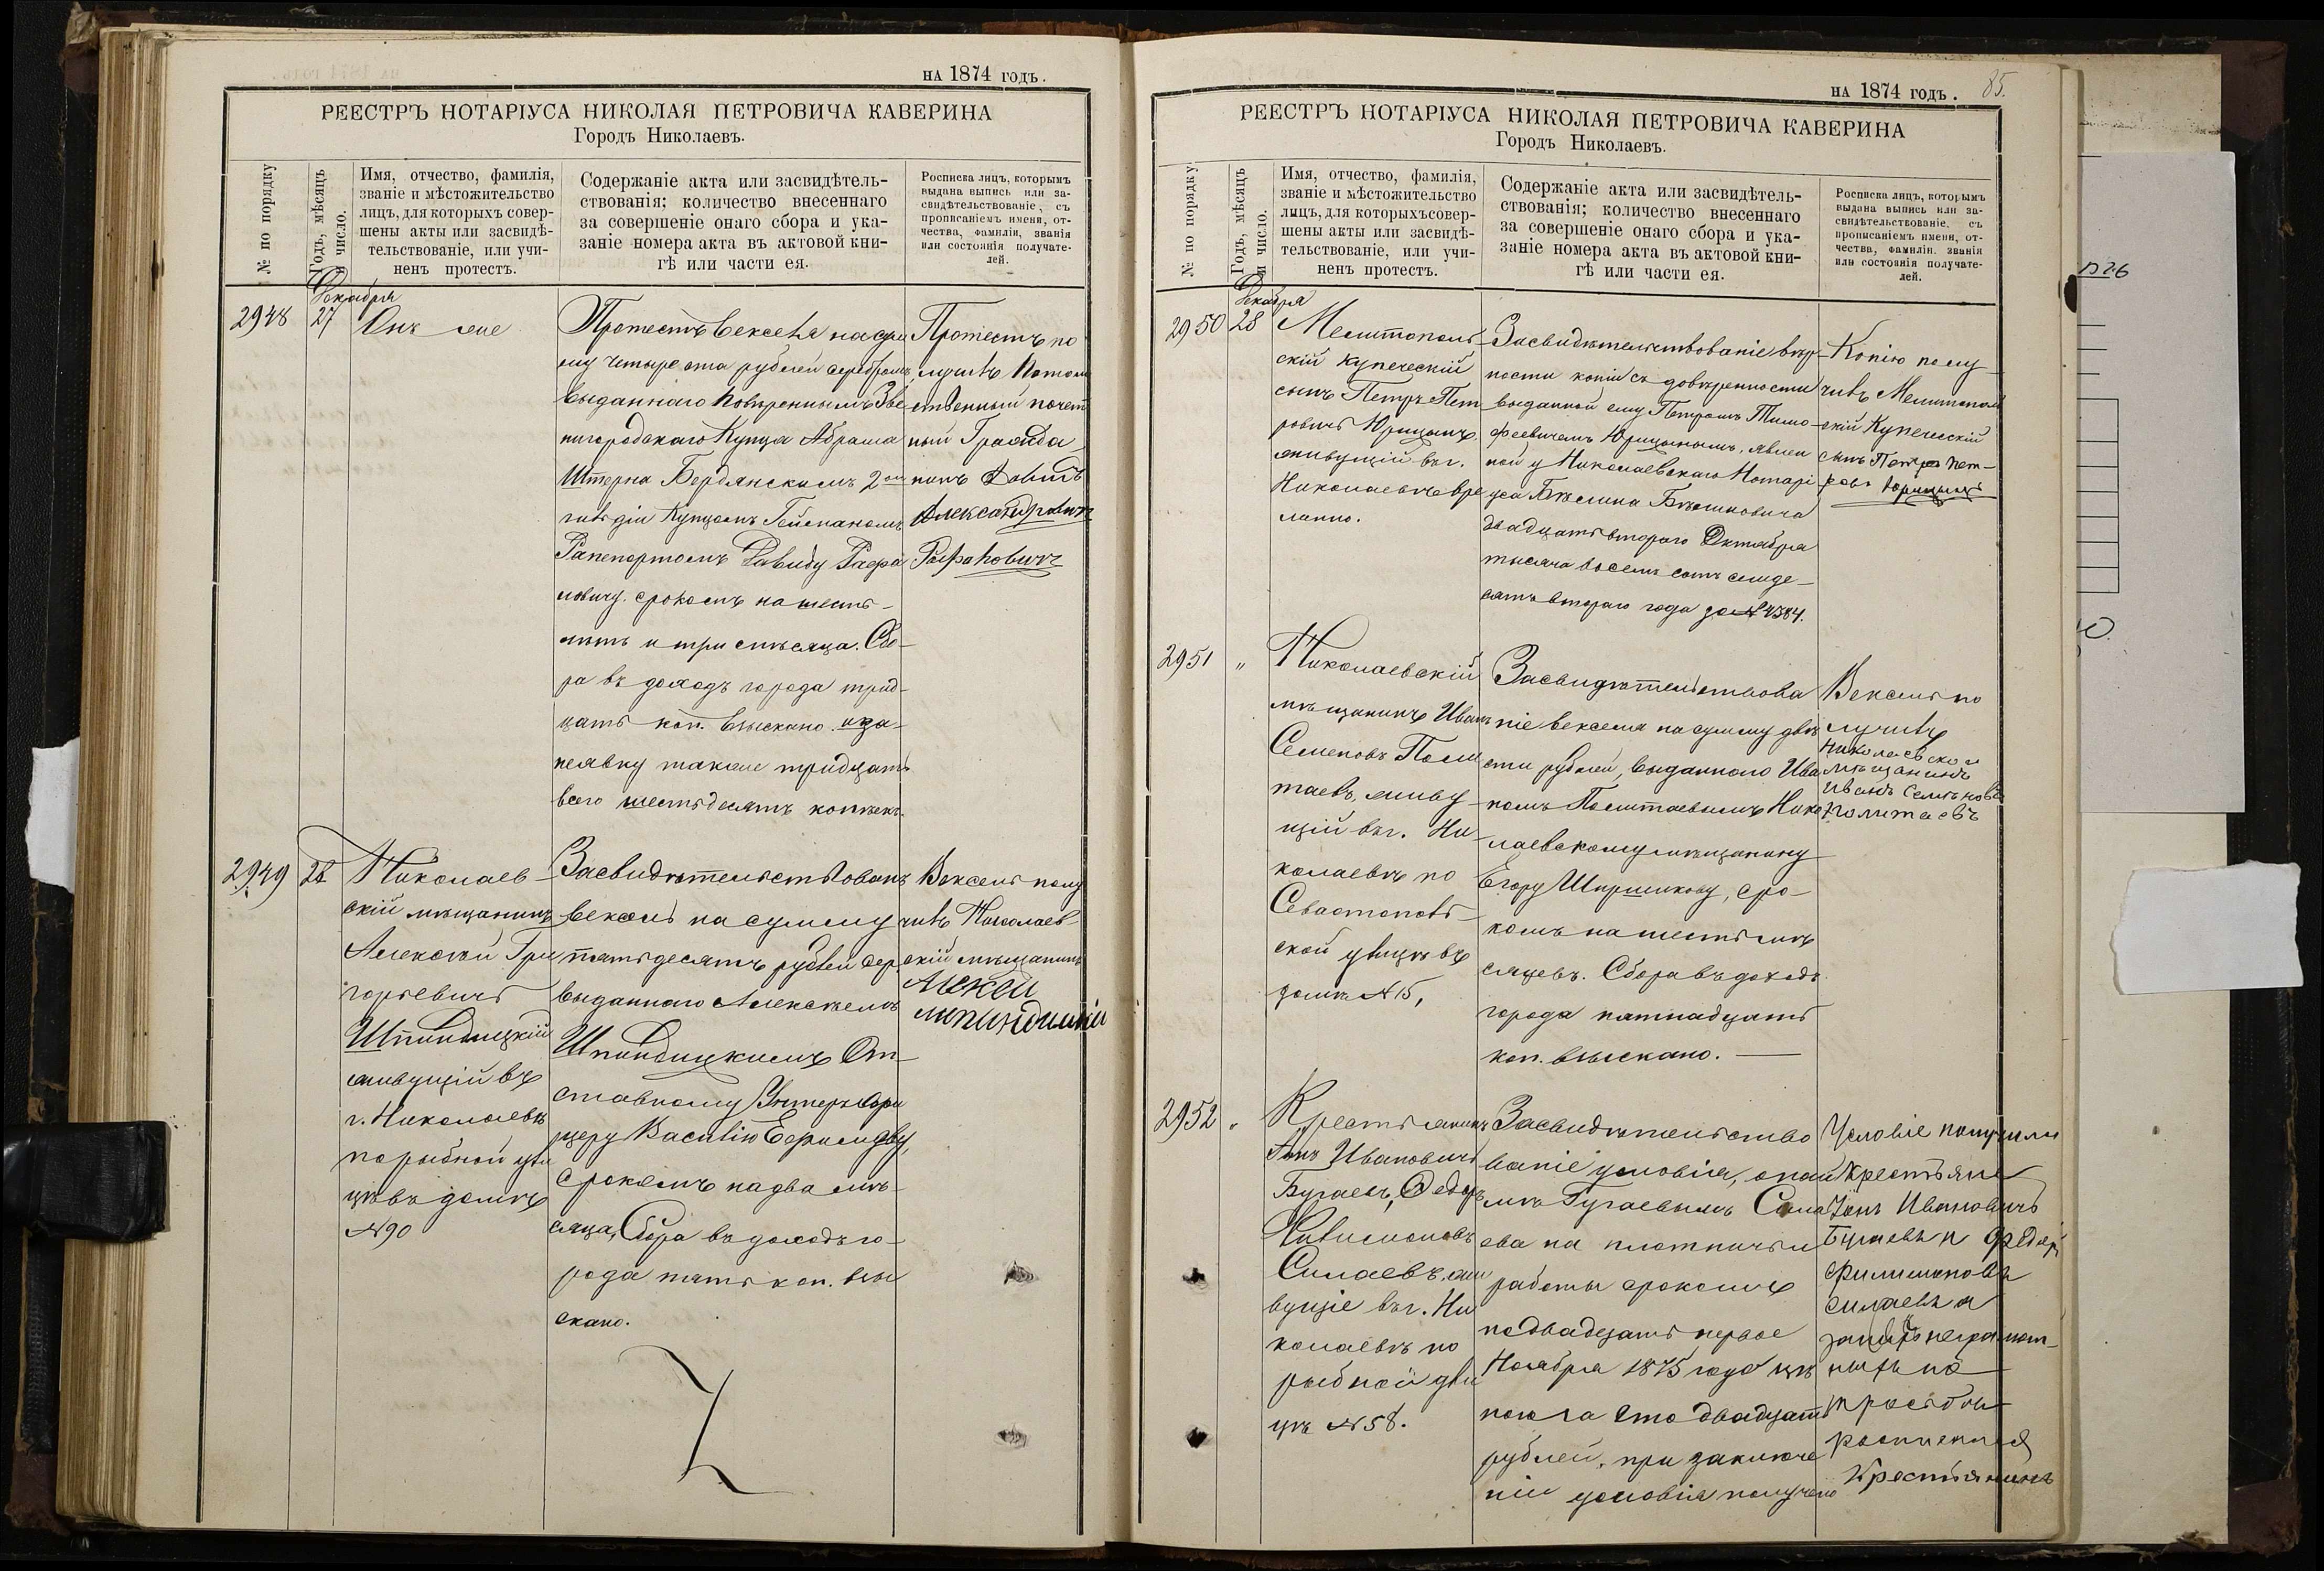 на 1874 годъ.
РЕЕСТРЪ НОТАРІУСА НИКОЛАЯ ПЕТРОВИЧА КАВЕРИНА
Городъ Николаевъ.
№ по порядку
Годъ, мѣсяцъ
и число.
Имя, отчество, фамилія,
званіе и мѣстожительство
лицъ, для которыхъ совер-
шены акты или засвидѣ-
тельствованіе, или учи-
ненъ протестъ.
Содержаніе акта или засвидѣтель-
ствованія; количество внесеннаго
за совершеніе онаго сбора и ука-
заніе номера акта въ актовой кни-
гѣ или части ея.
Росписка лицъ, которымъ
выдана выпись или за-
свидѣтельствованіе, съ
прописаніемъ имени, от-
чества, фамиліи, званія
или состоянія получате-
лей.
Декабря
2948
27
Онъ же
Протестъ векселя на сум
му четыреста рублей серебромъ,
выданнаго повѣреннымъ Зве
нигородскаго Купца Абрама
Штерна Бердянскимъ 2ой
гильдіи Купцомъ
Рапепортомъ Давиду Рафа
ловичу срокомъ на шесть-
мѣсяца. Сбо-
ра въ доходъ города трид-
цать коп. взыскано. и за-
неявку также тридцать
всего шестьдесятъ копѣекъ.
Протестъ по
лучилъ Потом
ственный почет
ный Гражда
нинъ Давидъ
Александровичъ
Рафаловичъ
2949
28
Николаев-
скій мѣщанинъ
Алексѣй Гри
горьевичъ
живущій въ
г. Николаевѣ
по рыбной ули
цѣ въ домѣ
№ 90
Засвидѣтельствованъ
вексель на сумму
пятьдесятъ рублей сер.
выданнаго Алексѣемъ
От-
ставному Унтеръ офи
церу Василію Ефимову,
срокомъ на два мѣ-
сяца, Сбора въ доходъ го-
рода пять коп. взы
скано.
Вексель полу
чилъ Николаев-
скій мѣщанинъ
на 1874 годъ.
85.
РЕЕСТРЪ НОТАРІУСА НИКОЛАЯ ПЕТРОВИЧА КАВЕРИНА
Городъ Николаевъ.
№ по порядку
Годъ, мѣсяцъ
и число.
Имя, отчество, фамилія,
званіе и мѣстожительство
лицъ, для которыхъ совер-
шены акты или засвидѣ-
тельствованіе, или учи-
ненъ протестъ.
Содержаніе акта или засвидѣтель-
ствованія; количество внесеннаго
за совершеніе онаго сбора и ука-
заніе номера акта въ актовой кни-
гѣ или части ея.
Росписка лицъ, которымъ
выдана выпись или за-
свидѣтельствованіе, съ
прописаніемъ имени, от-
чества, фамиліи, званія
или состоянія получате-
лей.
Декабря
2950
28
Мелитополь-
скій купеческій
сынъ Петръ Пет
ровичъ Юрицынъ,
живущій въ г.
Николаевѣ вре
менно.
Засвидѣтельствованіе вѣр-
ности копіи съ довѣренности
выданной ему Петромъ Тимо-
феевичемъ Юрицынымъ, явлен
ной у Николаевскаго Нотарі
уса
двадцать второго Октября
тысяча восемь сотъ семьде-
сятъ второго года за № 4384.
Копію полу-
чилъ Мелитополь
скій Купеческій
сынъ Петръ Пет-
ровъ Юрицынъ
2951
"
Николаевскій
мѣщанинъ Иванъ
Семеновъ Поли
таевъ, живу-
щій въ г. Ни-
колаевѣ по
Севастополь-
ской улицѣ въ
домѣ № 15,
Засвидѣтельствова
ніе векселя на сумму двѣ
сти рублей, выданнаго Ива
номъ Политаевымъ Нико
лаевскому мѣщанину
Егору Ширшикову, сро-
комъ на шесть мѣ
сяцевъ. Сбора въ доходъ
города пятнадцать
коп. взыскано.
Вексель по
лучилъ
николаевской
мѣщанинъ
иванъ Семѣновъ
политаевъ
2952
"
Крестьянинъ
Іонъ Ивановичъ
Бугаевъ, Федоръ
Силаевъ, жи
вущіе въ г. Ни
колаевѣ по
рыбной ули
цѣ № 58.
Засвидѣтельство
ваніе условія, о най
мѣ Бугаевымъ Сила
ева на плотничьи
работы срокомъ
по двадцать первое
Ноября 1875 года цѣ
ною за сто двадцать
рублей, при заключе
ніи условія получено
Условіе получили
Крестьяне
Іонъ Ивановичъ
Бугаевъ и Федоръ
Филимоновъ
силаевъ а
за неграмот-
ныхъ по
просьбы
росписался
Крестьянинъ